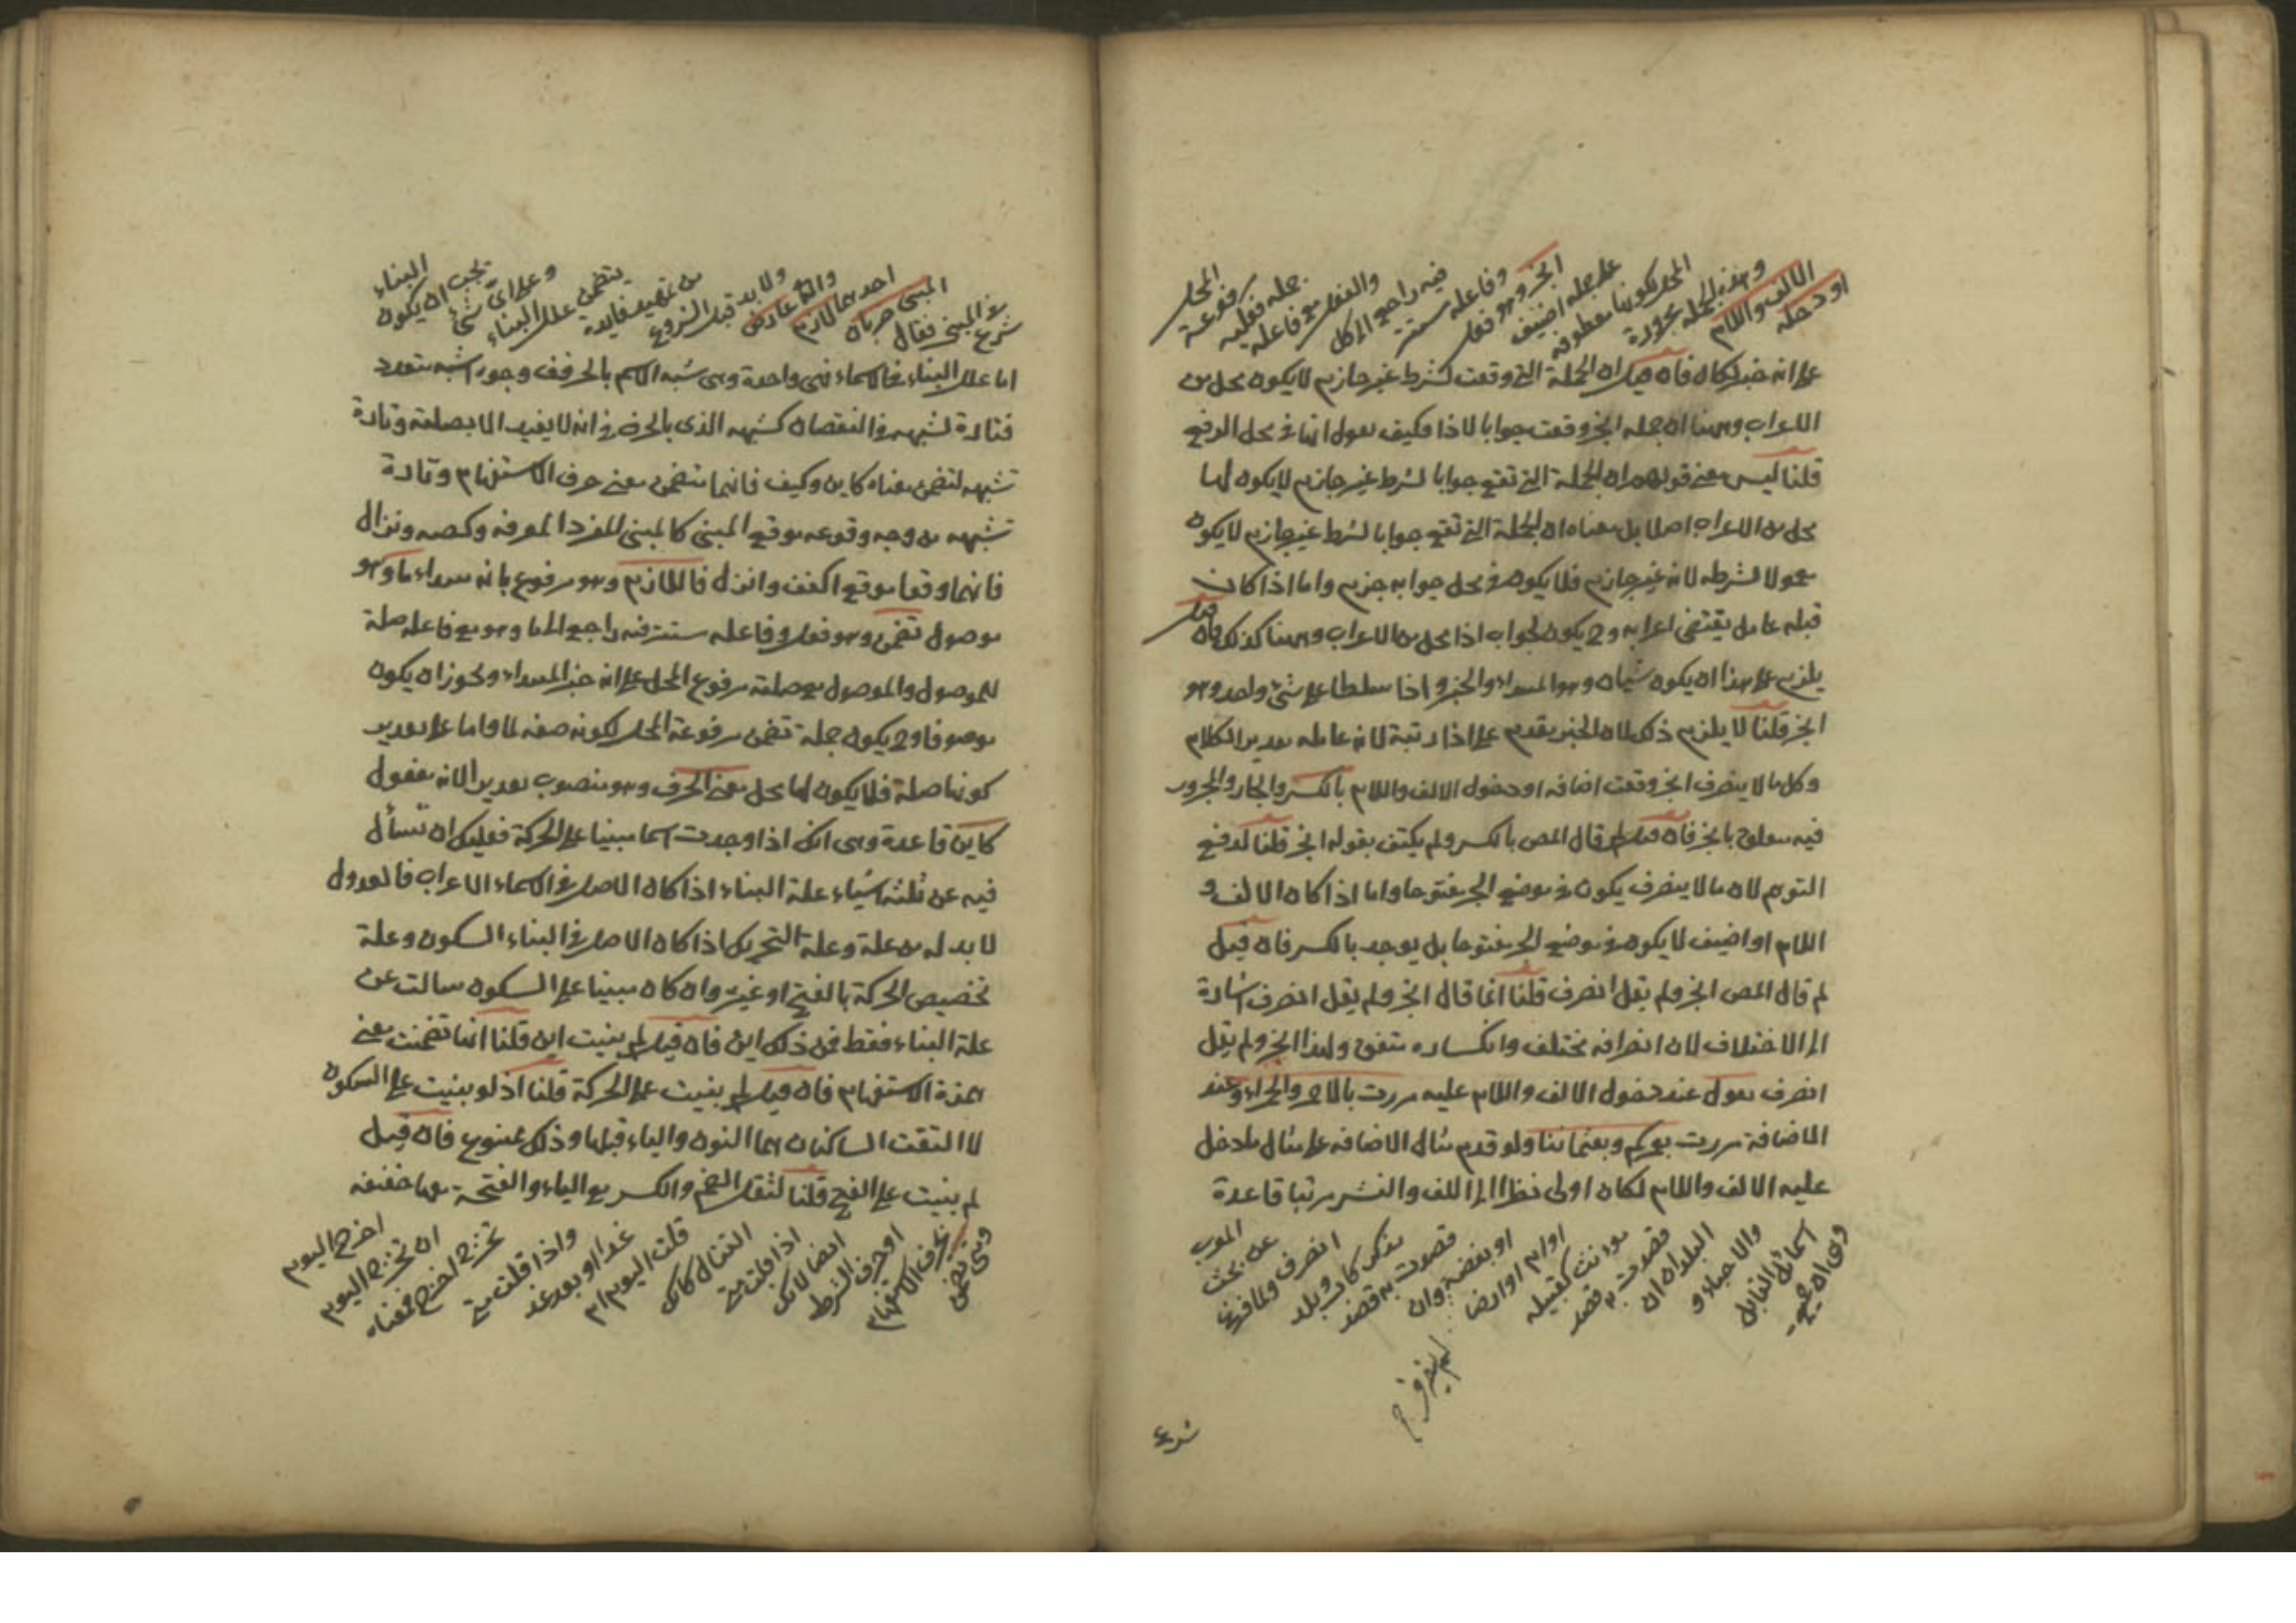 او دخله
الالف واللام
وهذه الجملة مجرورة
المحل لكونها معطوفة
على جملة اضيف
انجر وهو فعل
وفاعله مستتر
فيه راجع الى كل
والفعل مع فاعله
جملة فعلية
مرفوعة
المحل
على انه خبر لكل فان قيل ان الجملة التى وقعت لشرط غير جازم لا يكون محل من
الاعراب وههنا ان جملة انجر وقعت جوابا لاذا فكيف يقول انها فى محل الرفع
قلنا ليس معنى قولهم ان الجملة التى تقع جوابا لشرط غير جازم لا يكون لها
محل من الاعراب اصلا بل معناه ان الجملة التى تقع جوابا لشرط غير جازم لا يكون
معمولا لشرطه لانه غير جازم فلا يكون فى محل جوابه جزم واما اذا كان
قبله عامل يقتضى اعرابه وح يكون لجواب اذا محل من الاعراب وههنا كذلك فان قيل
يلزم على هذا ان يكون شيئان وهو المبتداء والخبر واذا سلطا على شئ واحد وهو
انجر قلنا لا يلزم ذلك لان الخبر يقدم على اذا رتبة لانه عامله تقدير الكلام
وكل ما لا ينصرف انجر وقعت اضافه او دخول الالف واللام بالكسر والجار والمجرور
فيه متعلق بانجر فان قيل لم قال المص بالكسر ولم يكتف بقوله انجر قلنا لدفع
التوهم لان ما لا ينصرف يكون فى موضع الجر مفتوحا واما اذا كان الالف و
اللام او اضيف لا يكون فى موضع الجر مفتوحا بل يوجد بالكسر فان قيل
لم قال المص انجر ولم يقل انصرف قلنا انما قال انجر ولم يقل انصرف اشارة
الى الاختلاف لان انصرافه مختلف وانكساره متفق ولهذا انجر ولم يقل
انصرف تقول عند دخول الالف واللام عليه مررت بالاحمر والحمراء وعند
الاضافة مررت بعمركم وبعثماننا ولو قدم مثال الاضافه على مثال ما دخل
عليه الالف واللام لكان اولى نظرا الى اللف والنشر مرتبا قاعدة
وهى ان جميع
اسماء القبايل
والاحياء و
البلدان ان
قصدت به قصد
مؤنث كقبيله
او ام او ارض
او بقعة وان
قصدت به قصد
مذكر كاب وبلد
انصرف ولما فرغ
عن بحث
المعرب
شرع
شرع فى المبنى فقال
المبنى ضربان
احدهما لازم
والثانى عارض
ولا بد قبل الشروع
من تمهيد فايده
يتضمن علل البناء
وعلى اى شئ
يجب ان يكون
البناء
اما علل البناء فى الاسماء فهى واحدة وهى شبه الاسم بالحرف وجوه الشبه متعدد
فتارة لشبهه فى النقصان كشبه الذى بالحرف فى انه لا يفيد الا بصلته وتارة
تشبهه لتضمن معناه كاين وكيف فانهما تتضمن معنى حرف الاستفهام وتارة
تشبهه من وجه وقوعه موقع المبنى كالمبنى للمفرد المعرفه وكصه ونزال
فانهما وقعا موقع اكفف وانزل فاللازم وهو مرفوع بانه مبتداء ما وهو
موصول تضمن وهو فعل وفاعله مستتر فيه راجع الى ما وهو مع فاعله صلة
للموصول والموصول مع صلته مرفوع المحل على انه خبر المبتداء ويجوز ان يكون
موصوفا وح يكون جملة تضمن مرفوعة المحل لكونه صفه لما واما على تقدير
كونها صلة فلا يكون لها محل معنى الحرف وهو منصوب تقديرا لانه مفعول
كاين قاعدة وهى انك اذا وجدت اسما مبنيا على الحركة فعليك ان تسأل
فيه عن ثلثه اشياء علة البناء اذا كان الاصل فى الاسماء الاعراب فالعدول
لا بد له من علة وعلة التحريك اذا كان الاصل فى البناء السكون وعلة
تخصيص الحركة بالفتح او غيره وان كان مبنيا على السكون سالت عن
علة البناء فقط فمن ذلك اين فان قيل لم بنيت اين قلنا انها تضمنت معنى
همزة الاستفهام فان قيل لم بنيت على الحركة قلنا اذ لو بنيت على السكون
لا التقت الساكنان هما النون والياء قبلها وذلك ممنوع فان قيل
لم بنيت على الفتح قلنا لثقل الضم والكسر مع الياء والفتحة معها خفيفه
ومتى تضمن
حرف الاستفهام
او حرف الشرط
ايضا لانك
اذا قلت متى
القتال كانك
قلت اليوم ام
غدا او بعد غد
واذا قلت متى
تخرج اخرج فمعناه
ان تخرج اليوم
اخرج اليوم